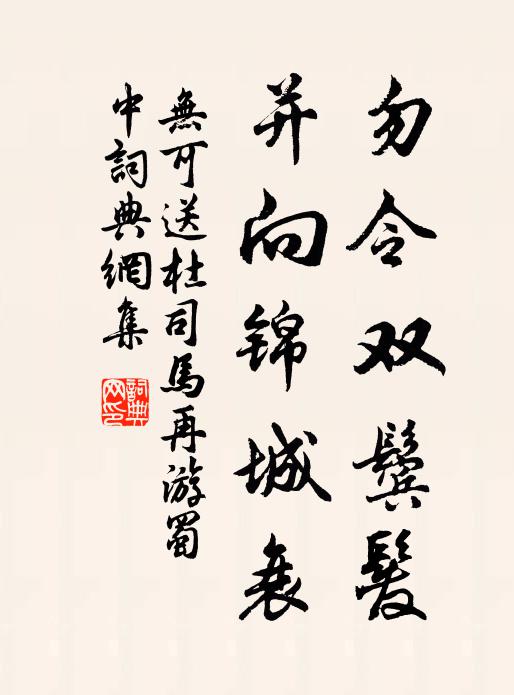 勿令双鬓髮
并向锦城衰
無可送杜司馬再游蜀
中詞典網集
詞典
网印